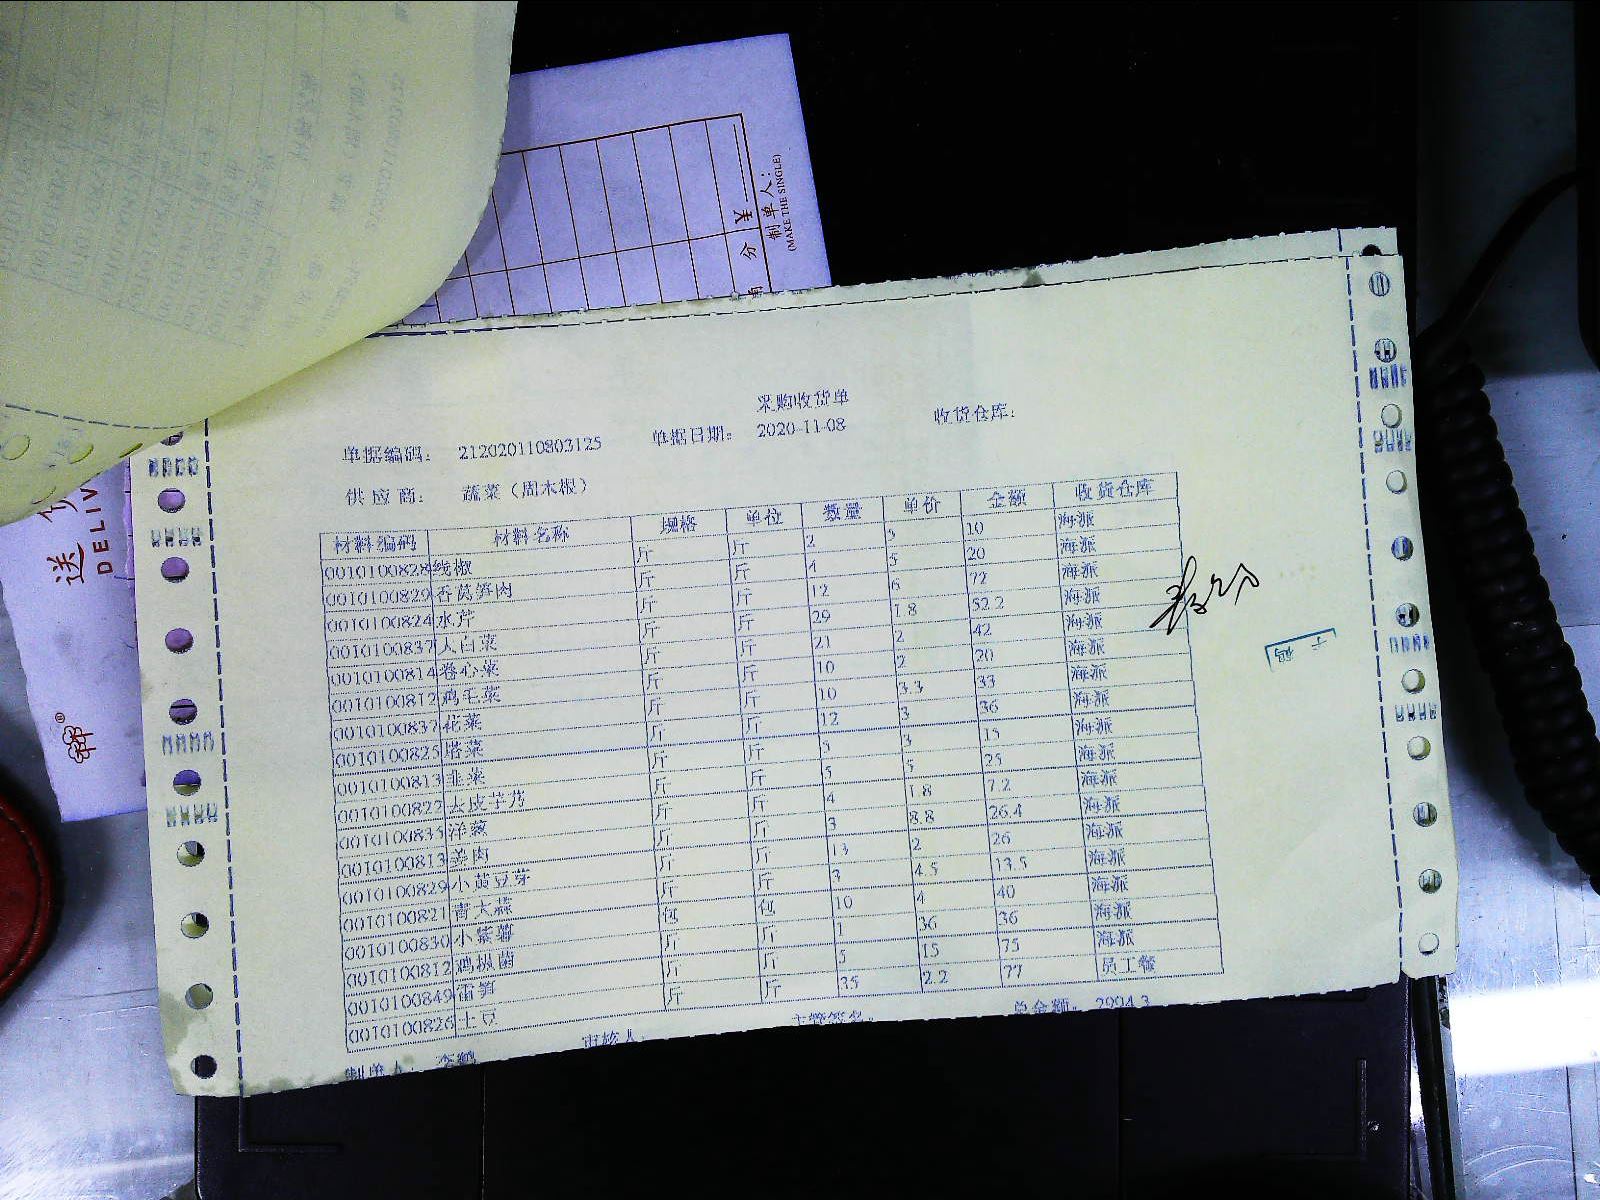 制单人:
(MAKE THE SINGLE)
¥
分
送
DELIV
采购收货单
单据编码: 212020110803125 单据日期: 2020-11-08 收货仓库:
供应商: 蔬菜(周木根)
材料编码 材料名称 规格 单位 数量 单价 金额 收货仓库
0010100828 线椒 斤 斤 2 5 10 海派
0010100829 香莴笋肉 斤 斤 4 5 20 海派
0010100824 水芹 斤 斤 12 6 72 海派
0010100837 大白菜 斤 斤 29 1.8 52.2 海派
0010100814 卷心菜 斤 斤 21 2 42 海派
0010100812 鸡毛菜 斤 斤 10 2 20 海派
0010100837 花菜 斤 斤 10 3.3 33 海派
0010100825 塔菜 斤 斤 12 3 36 海派
0010100813 韭菜 斤 斤 5 3 15 海派
0010100822 去皮芋艿 斤 斤 5 5 25 海派
0010100835 洋葱 斤 斤 4 1.8 7.2 海派
0010100813 姜肉 斤 斤 3 8.8 26.4 海派
0010100829 小黄豆芽 斤 斤 13 2 26 海派
0010100821 青大蒜 斤 斤 3 4.5 13.5 海派
0010100830 小紫薯 包 包 10 4 40 海派
0010100812 鸡枞菌 斤 斤 1 36 36 海派
0010100849 雷笋 斤 斤 5 15 75 海派
0010100826 土豆 斤 斤 35 2.2 77 员工餐
制单人: 李鹤 审核人: 主管签名: 总金额: 2994.3